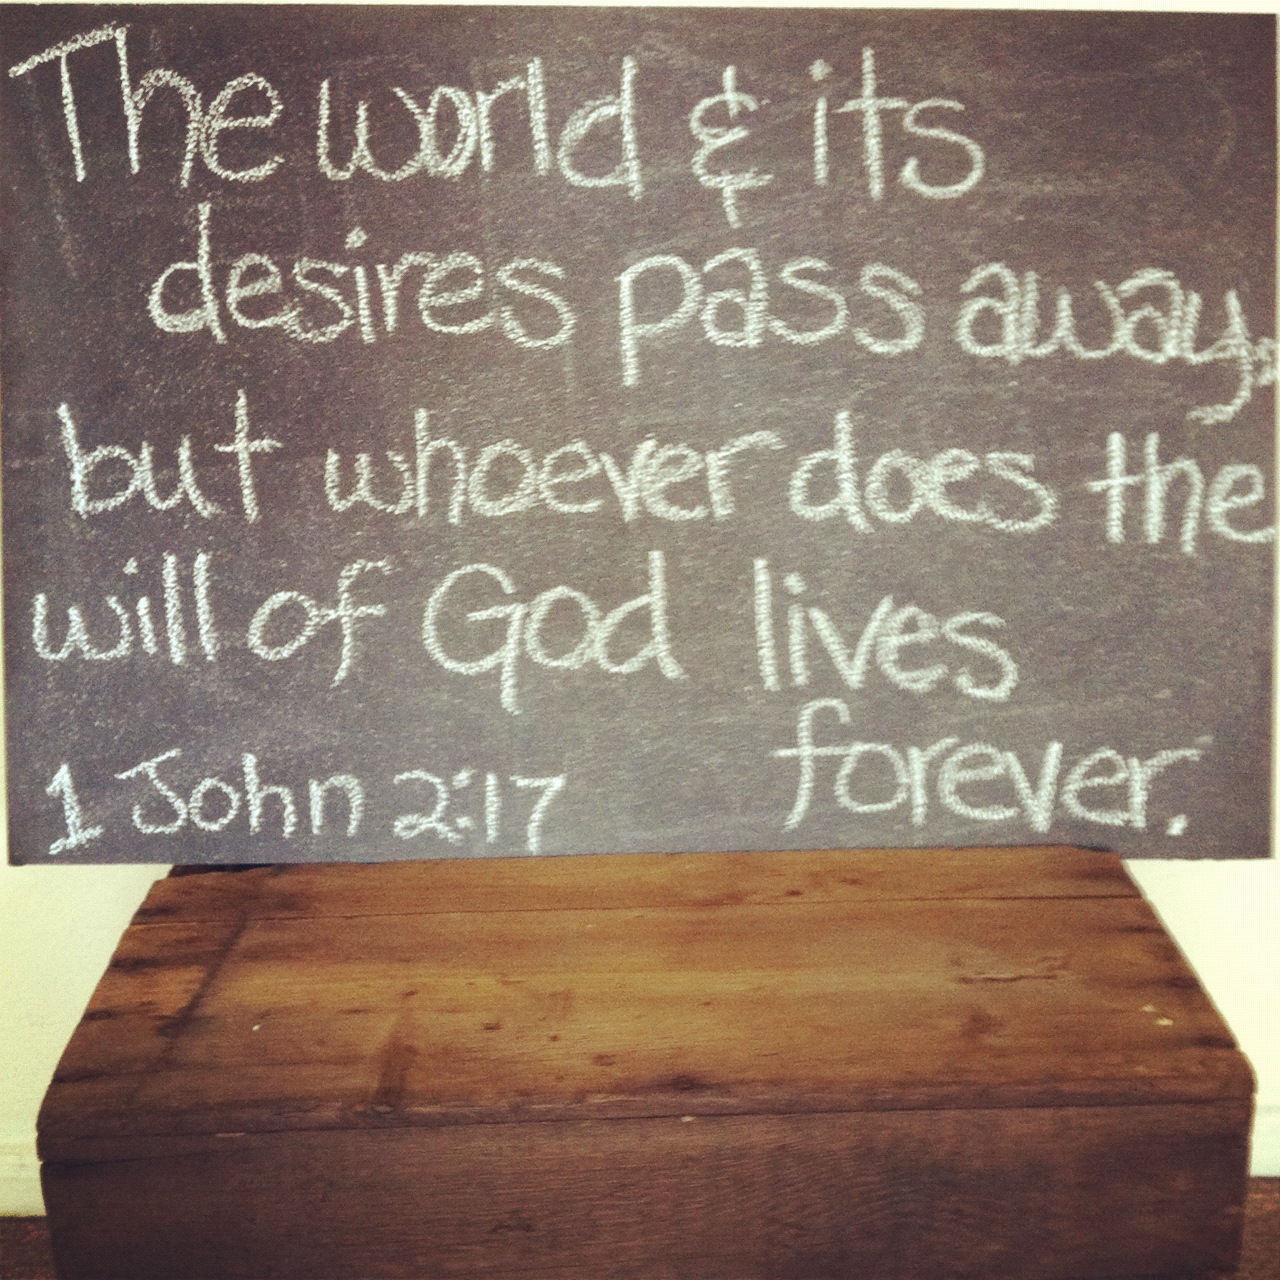 The world & its
desires pass away,
but whoever does the
will of God lives
forever.
1 John 2:17